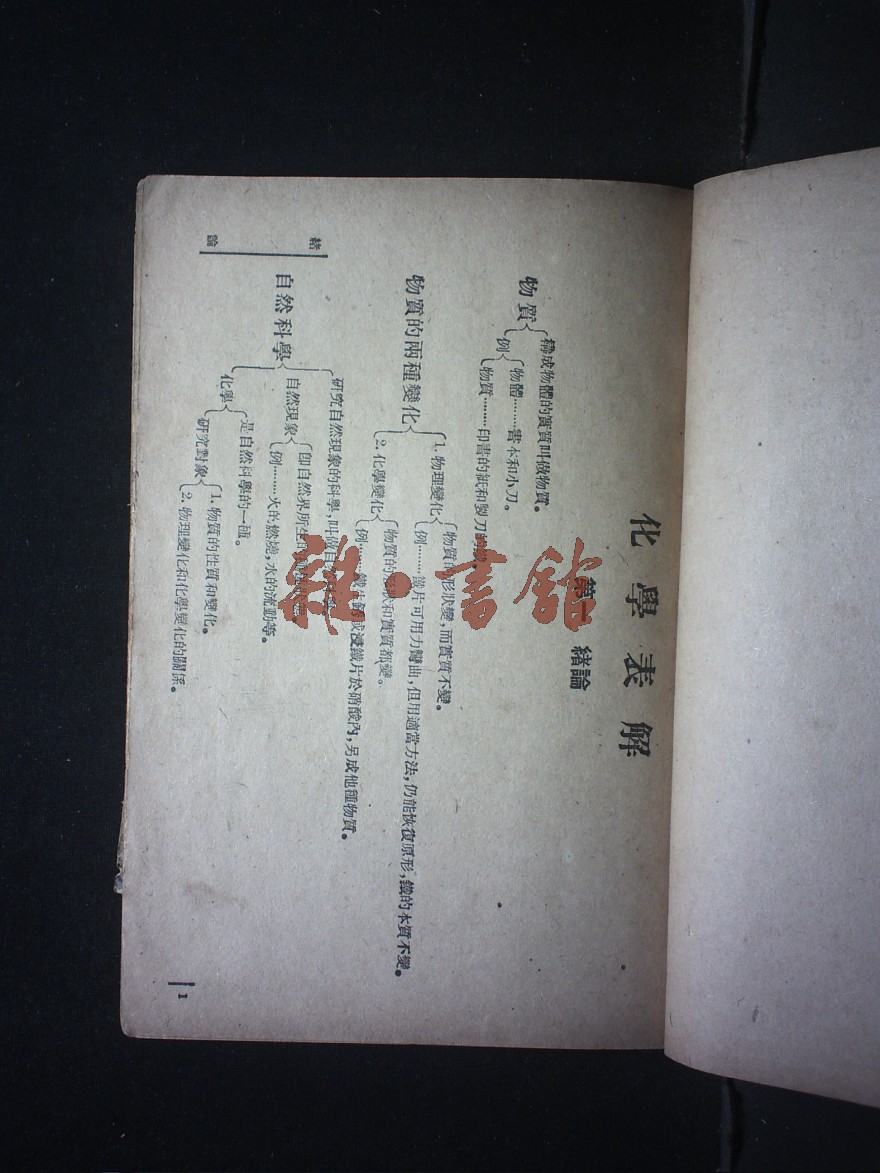 化學表解
第一 緒論
物質
構成物體的實質叫做物質。
例
物體………書本和小刀。
物質………印書的紙和製刀的
物質的兩種變化
1. 物理變化
物質的形狀變,而實質不變。
例………鐵片可用力彎曲,但用適當方法,仍能恢復原形,鐵的本質不變。
2. 化學變化
物質的形狀和實質都變。
例………鐵生銹或浸鐵片於硝酸內,另成他種物質。
自然科學
研究自然現象的科學,叫做自
自然現象
卽自然界所生的
例………火的燃燒,水的流動等。
化學
是自然科學的一種。
研究對象
1. 物質的性質和變化。
2. 物理變化和化學變化的關係。
緒論
1
書館